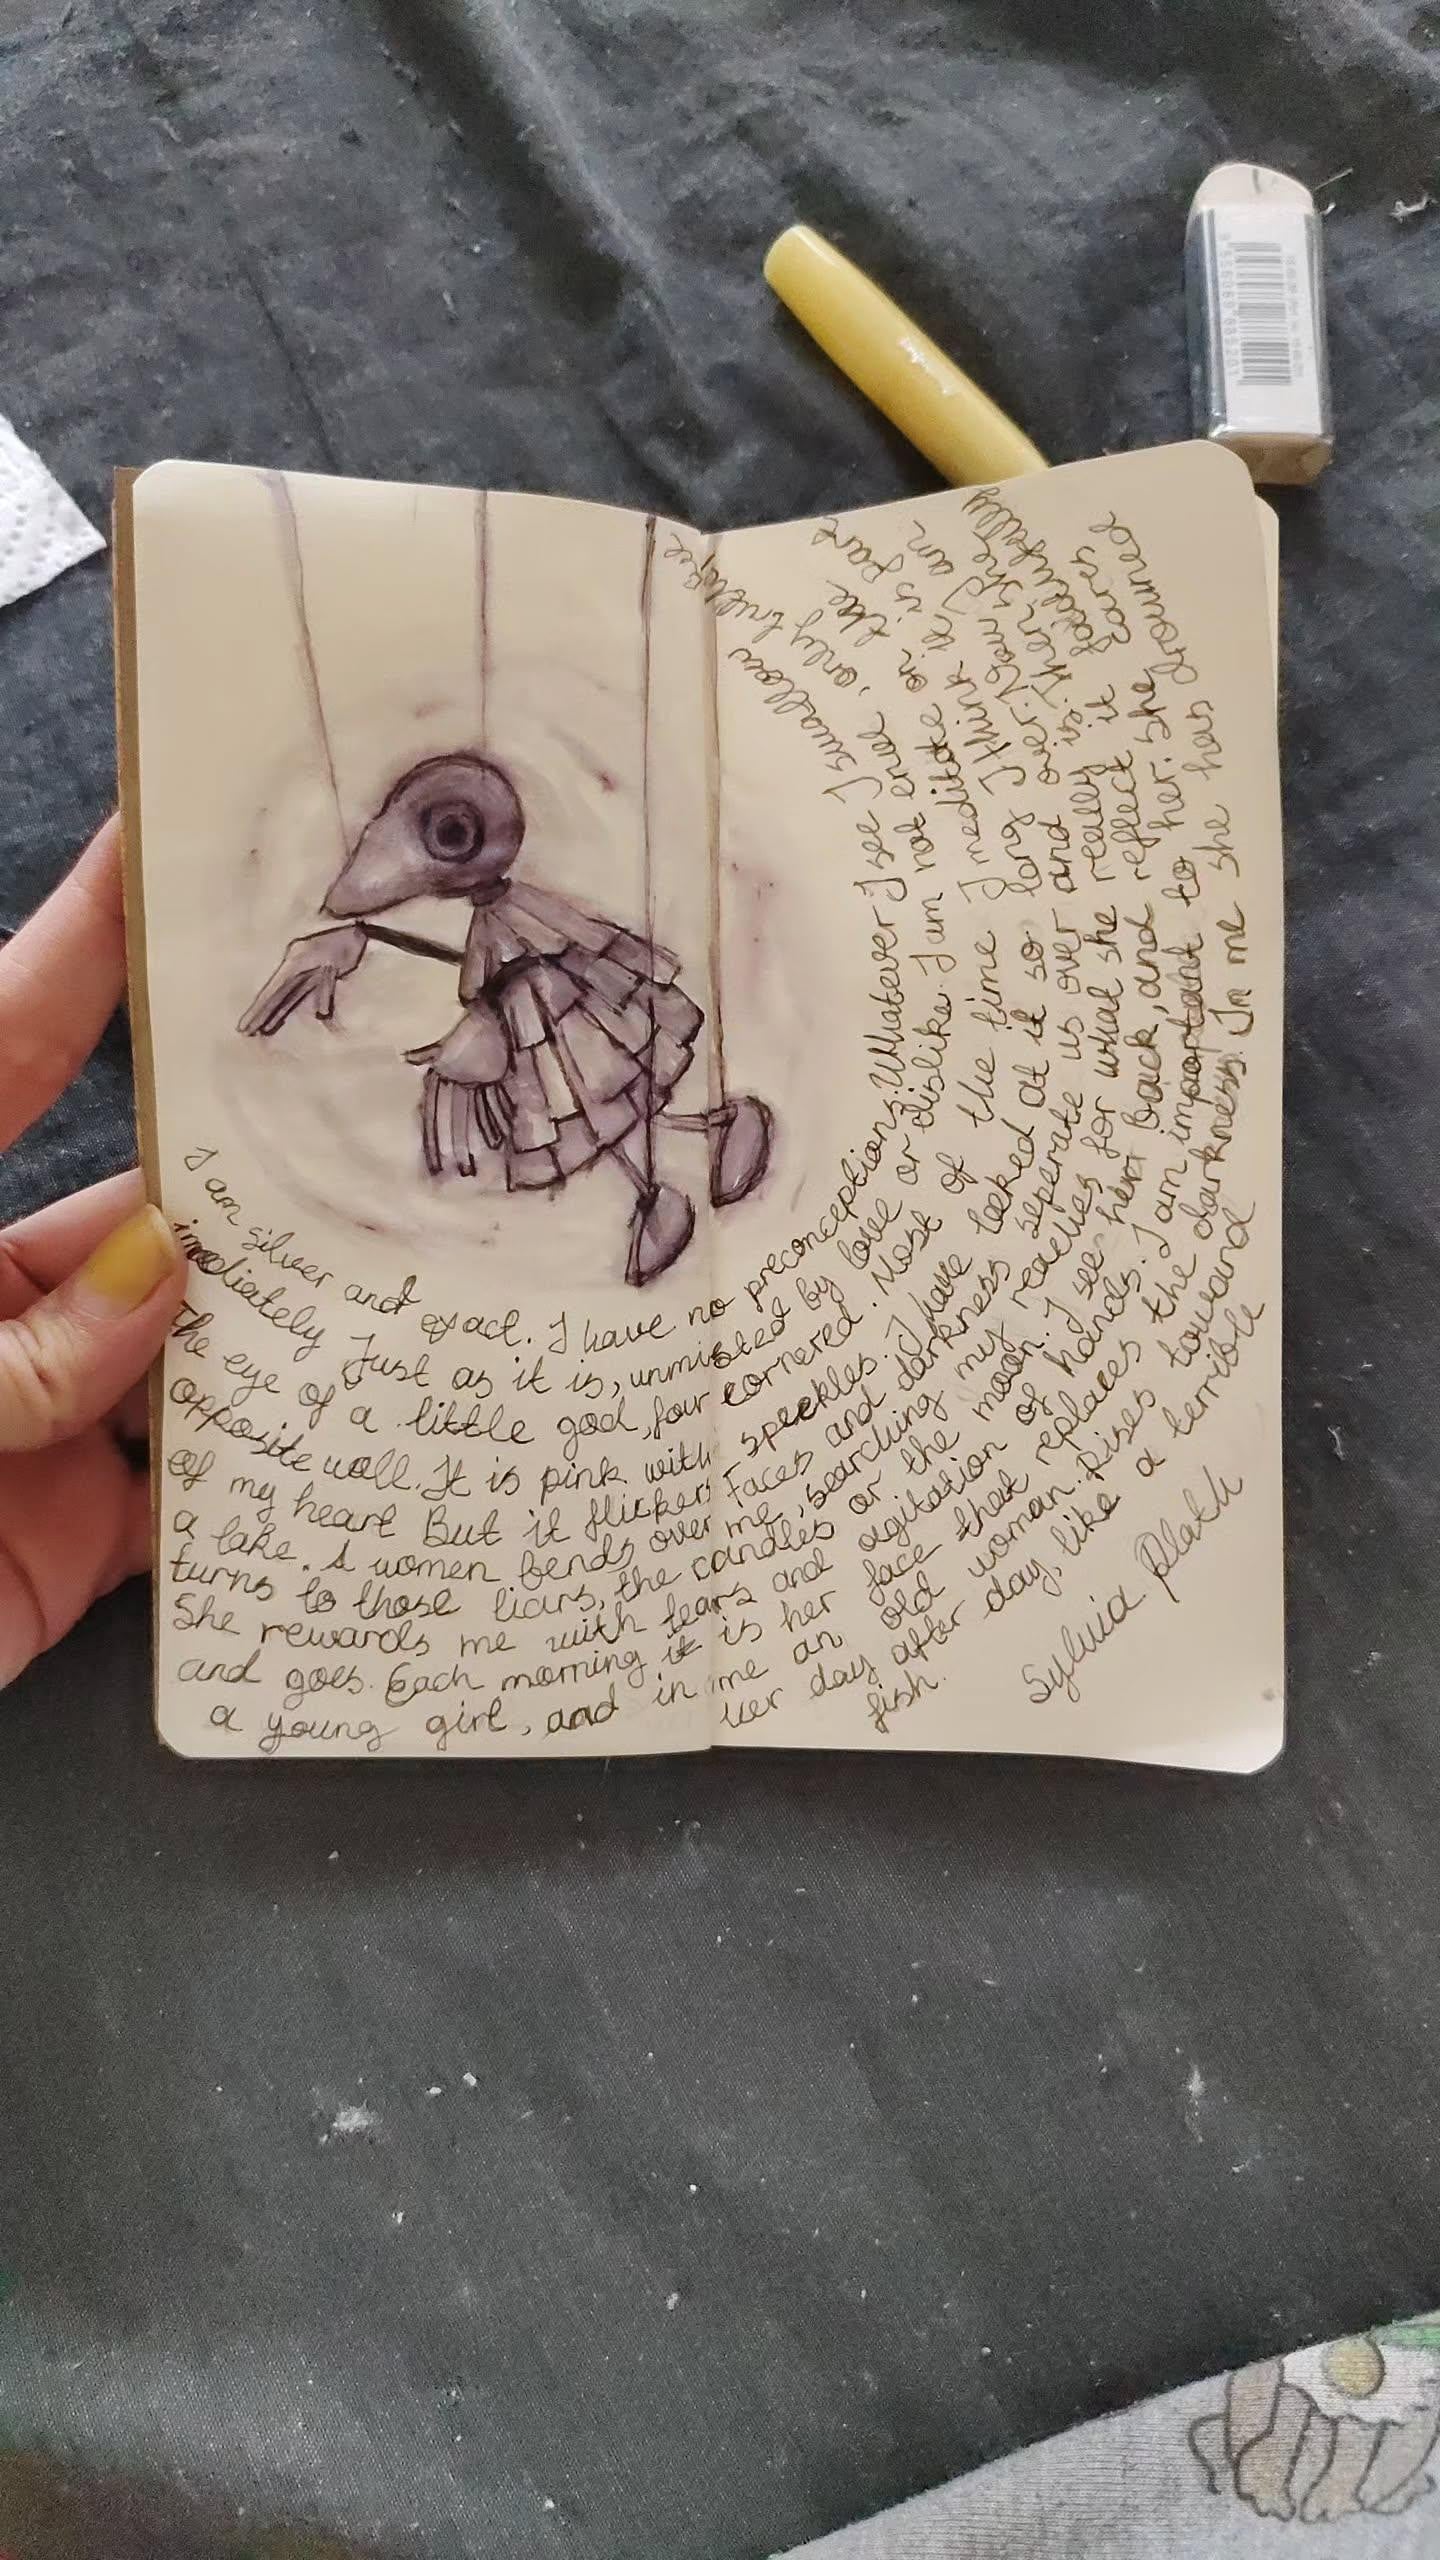 I am silver and exact. I have no preconceptions. Whatever I see I swallow
imediately Just as it is, unmisted by love or dislike. I am not cruel, only
The eye of a little god, four cornered. Most of the time I meditate on the
opposite wall. It is pink with speckles. I have looked at it so long I think it is part
of my heart But it flickers Faces and darkness seperate us over and over. Now I am
a lake. A women bends over me, searching my reaches for what she really is. Then she
turns to those liars, the candles or the moon. I see her back, and reflect it faithfully
She rewards me with tears and agitation of hands. I am important to her. She comes
and goes. Each morning it is her face that replaces the darkness. In me she has drowned
a young girl, and in me an old woman. Rises toward
her day after day, like a terrible
fish.
Sylvia Plath